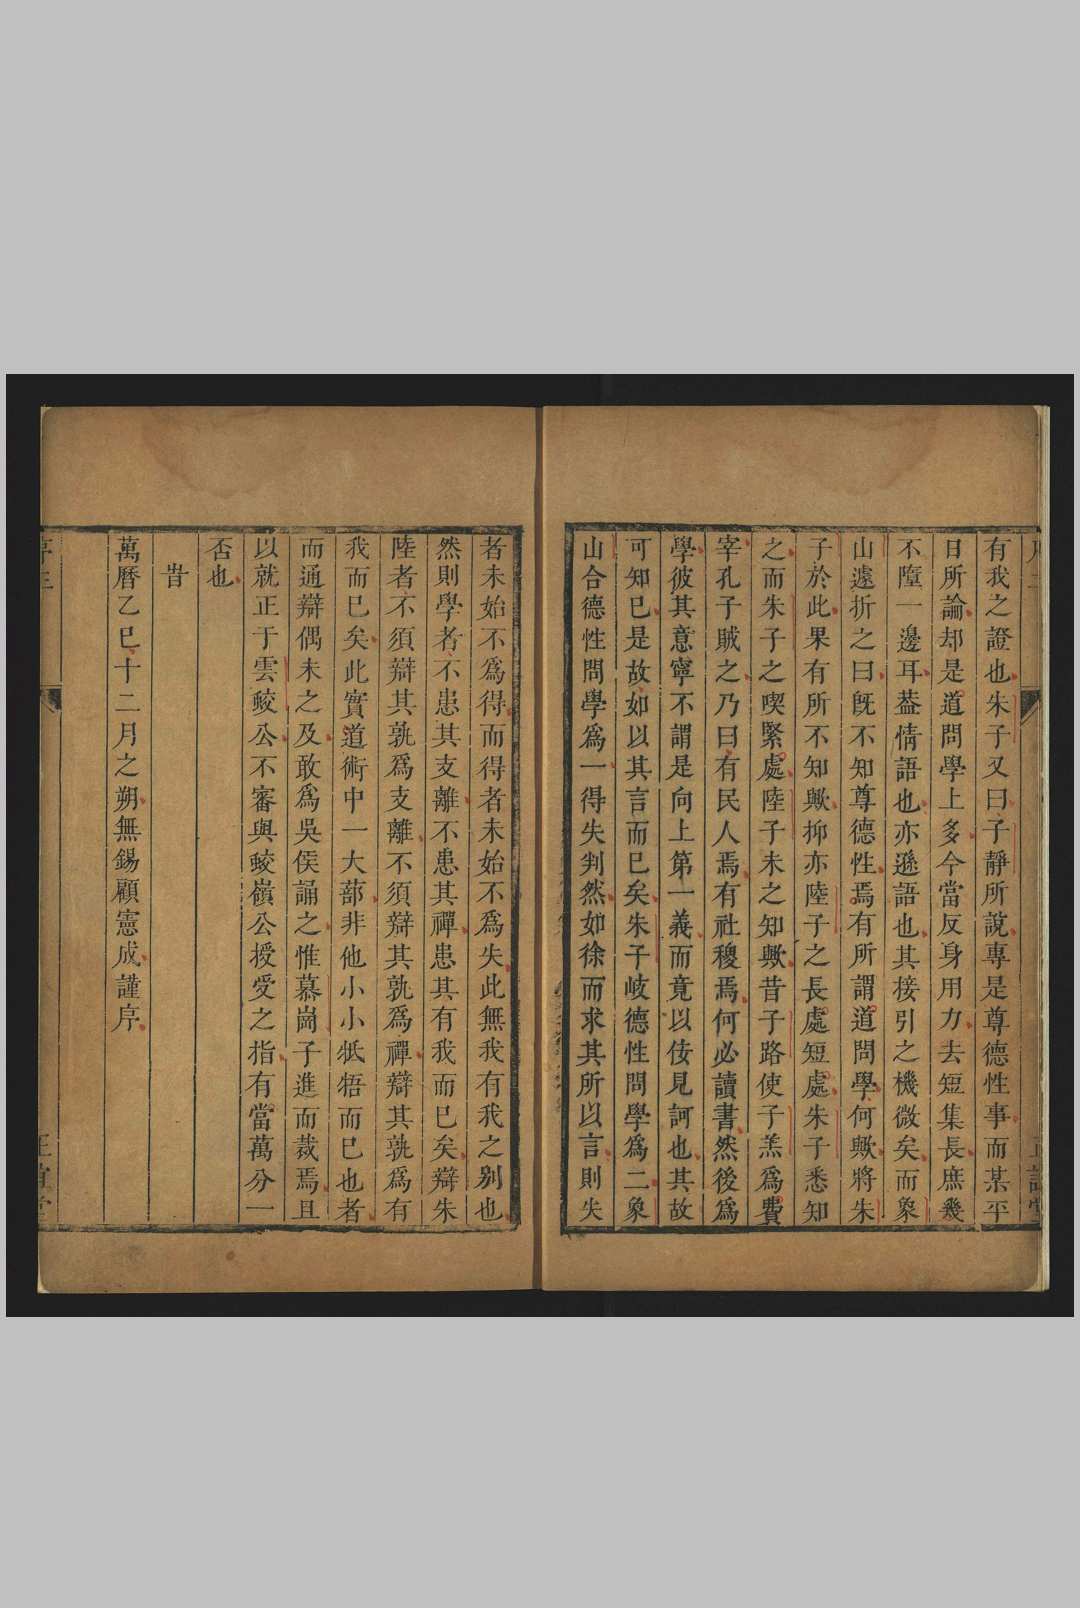 有我之證也朱子又曰子靜所說專是尊德性事而某平
日所論却是道問學上多今當反身用力去短集長庶幾
不墮一邊耳葢情語也亦遜語也其接引之機微矣而象
山遽折之曰旣不知尊德性焉有所謂道問學何歟將朱
子於此果有所不知歟抑亦陸子之長處短處朱子悉知
之而朱子之喫緊處陸子未之知歟昔子路使子羔爲費
宰孔子賊之乃曰有民人焉有社稷焉何必讀書然後爲
學彼其意寧不謂是向上第一義而竟以佞見訶也其故
可知已是故如以其言而已矣朱子岐德性問學爲二象
山合德性問學爲一得失判然如徐而求其所以言則失
者未始不爲得而得者未始不爲失此無我有我之別也
然則學者不患其支離不患其禪患其有我而已矣辯朱
陸者不須辯其孰爲支離不須辯其孰爲禪辯其孰爲有
我而已矣此實道術中一大蔀非他小小牴牾而已也者
而通辯偶未之及敢爲吳侯誦之惟慕崗子進而裁焉且
以就正于雲蛟公不審與蛟嶺公授受之指有當萬分一
否也
旹
萬曆乙巳十二月之朔無錫顧憲成謹序